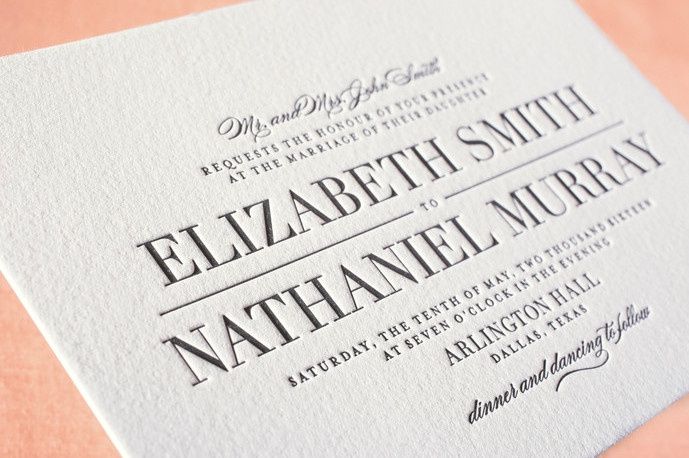 Mr. and Mrs. John Smith
REQUESTS THE HONOUR OF YOUR PRESENCE
AT THE MARRIAGE OF THEIR DAUGHTER
ELIZABETH SMITH
TO
NATHANIEL MURRAY
SATURDAY, THE TENTH OF MAY, TWO THOUSAND SIXTEEN
AT SEVEN O'CLOCK IN THE EVENING
ARLINGTON HALL
DALLAS, TEXAS
dinner and dancing to follow